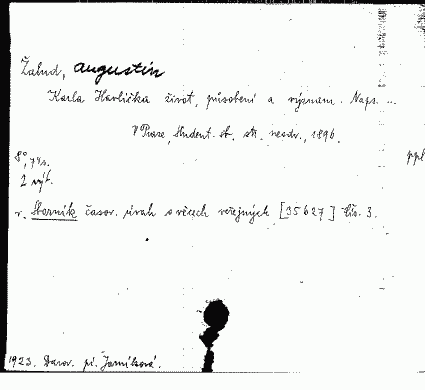 Žalud, Augustin
Karla Havlíčka život, působení a význam. Naps. ...
V Praze, Student. sb. str. neodv., 1896.
8°, 74 s. ppl
2 výt.
v. Sborník časov. úvah o věcech veřejných [35627] čís. 3.
1923. Darov. pí. Jarníková.